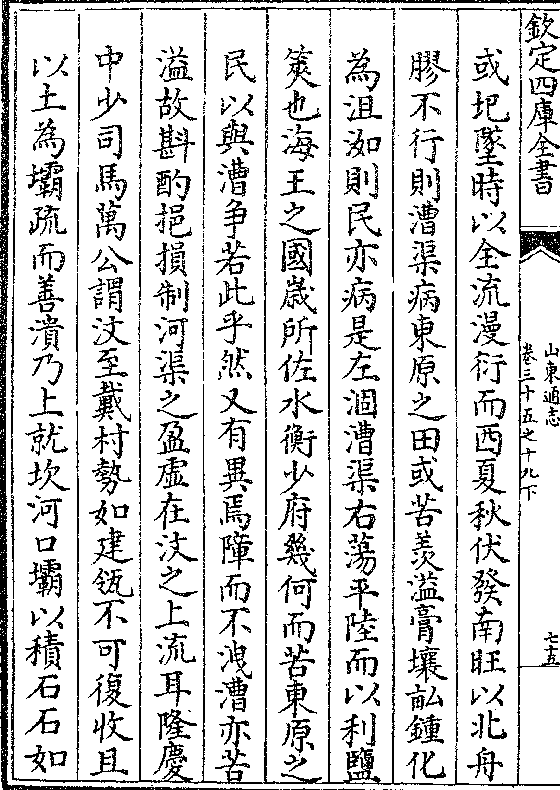 欽定四庫全書
山東通志
卷三十五之十九下
七十五
或圮墜時以全流漫衍而西夏秋伏發南旺以北舟
膠不行則漕渠病東原之田或苦羨溢膏壤畝鍾化
為沮洳則民亦病是左涸漕渠右蕩平陸而以利鹽
筴也海王之國歲所佐水衡少府幾何而苦東原之
民以與漕争若此乎然又有異焉障而不洩漕亦苦
溢故斟酌挹損制河渠之盈虛在汶之上流耳隆慶
中少司馬萬公謂汶至戴村勢如建瓴不可復收且
以土為壩疏而善潰乃上就坎河口壩以積石石如